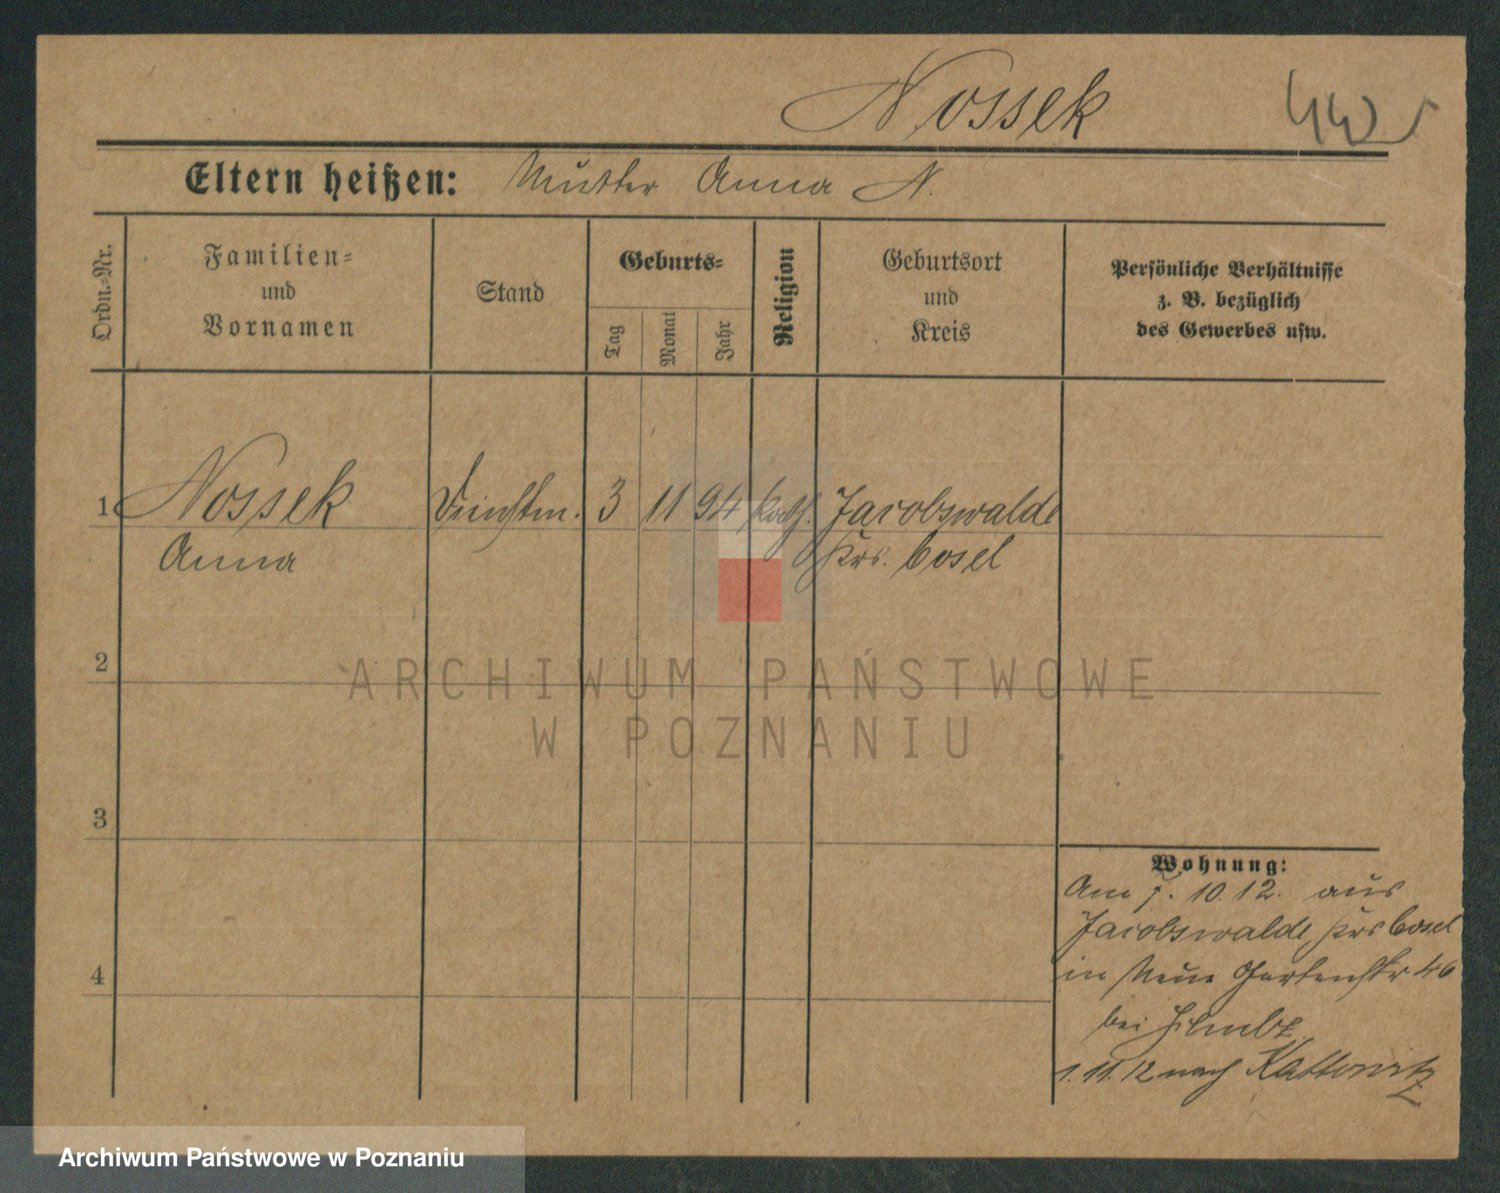 Nossek
Eltern heißen: Mutter Anna N.
Ordn.-Nr.
Familien-
und
Vornamen
Stand
Geburts-
Tag
Monat
Jahr
Religion
Geburtsort
und
Kreis
Persönliche Verhältnisse
z. B. bezüglich
des Gewerbes usw.
1 Nossek Dienstm. 3 11 94 kath. Jacobswalde
Anna Krs. Cosel
2
3
4
Wohnung:
Am 7. 10. 12. aus
Jacobswalde, Krs Cosel
in Neue Gartenstr 46
bei
1. 11. 12 nach Kattowitz
ARCHIWUM PAŃSTWOWE
W POZNANIU
Archiwum Państwowe w Poznaniu